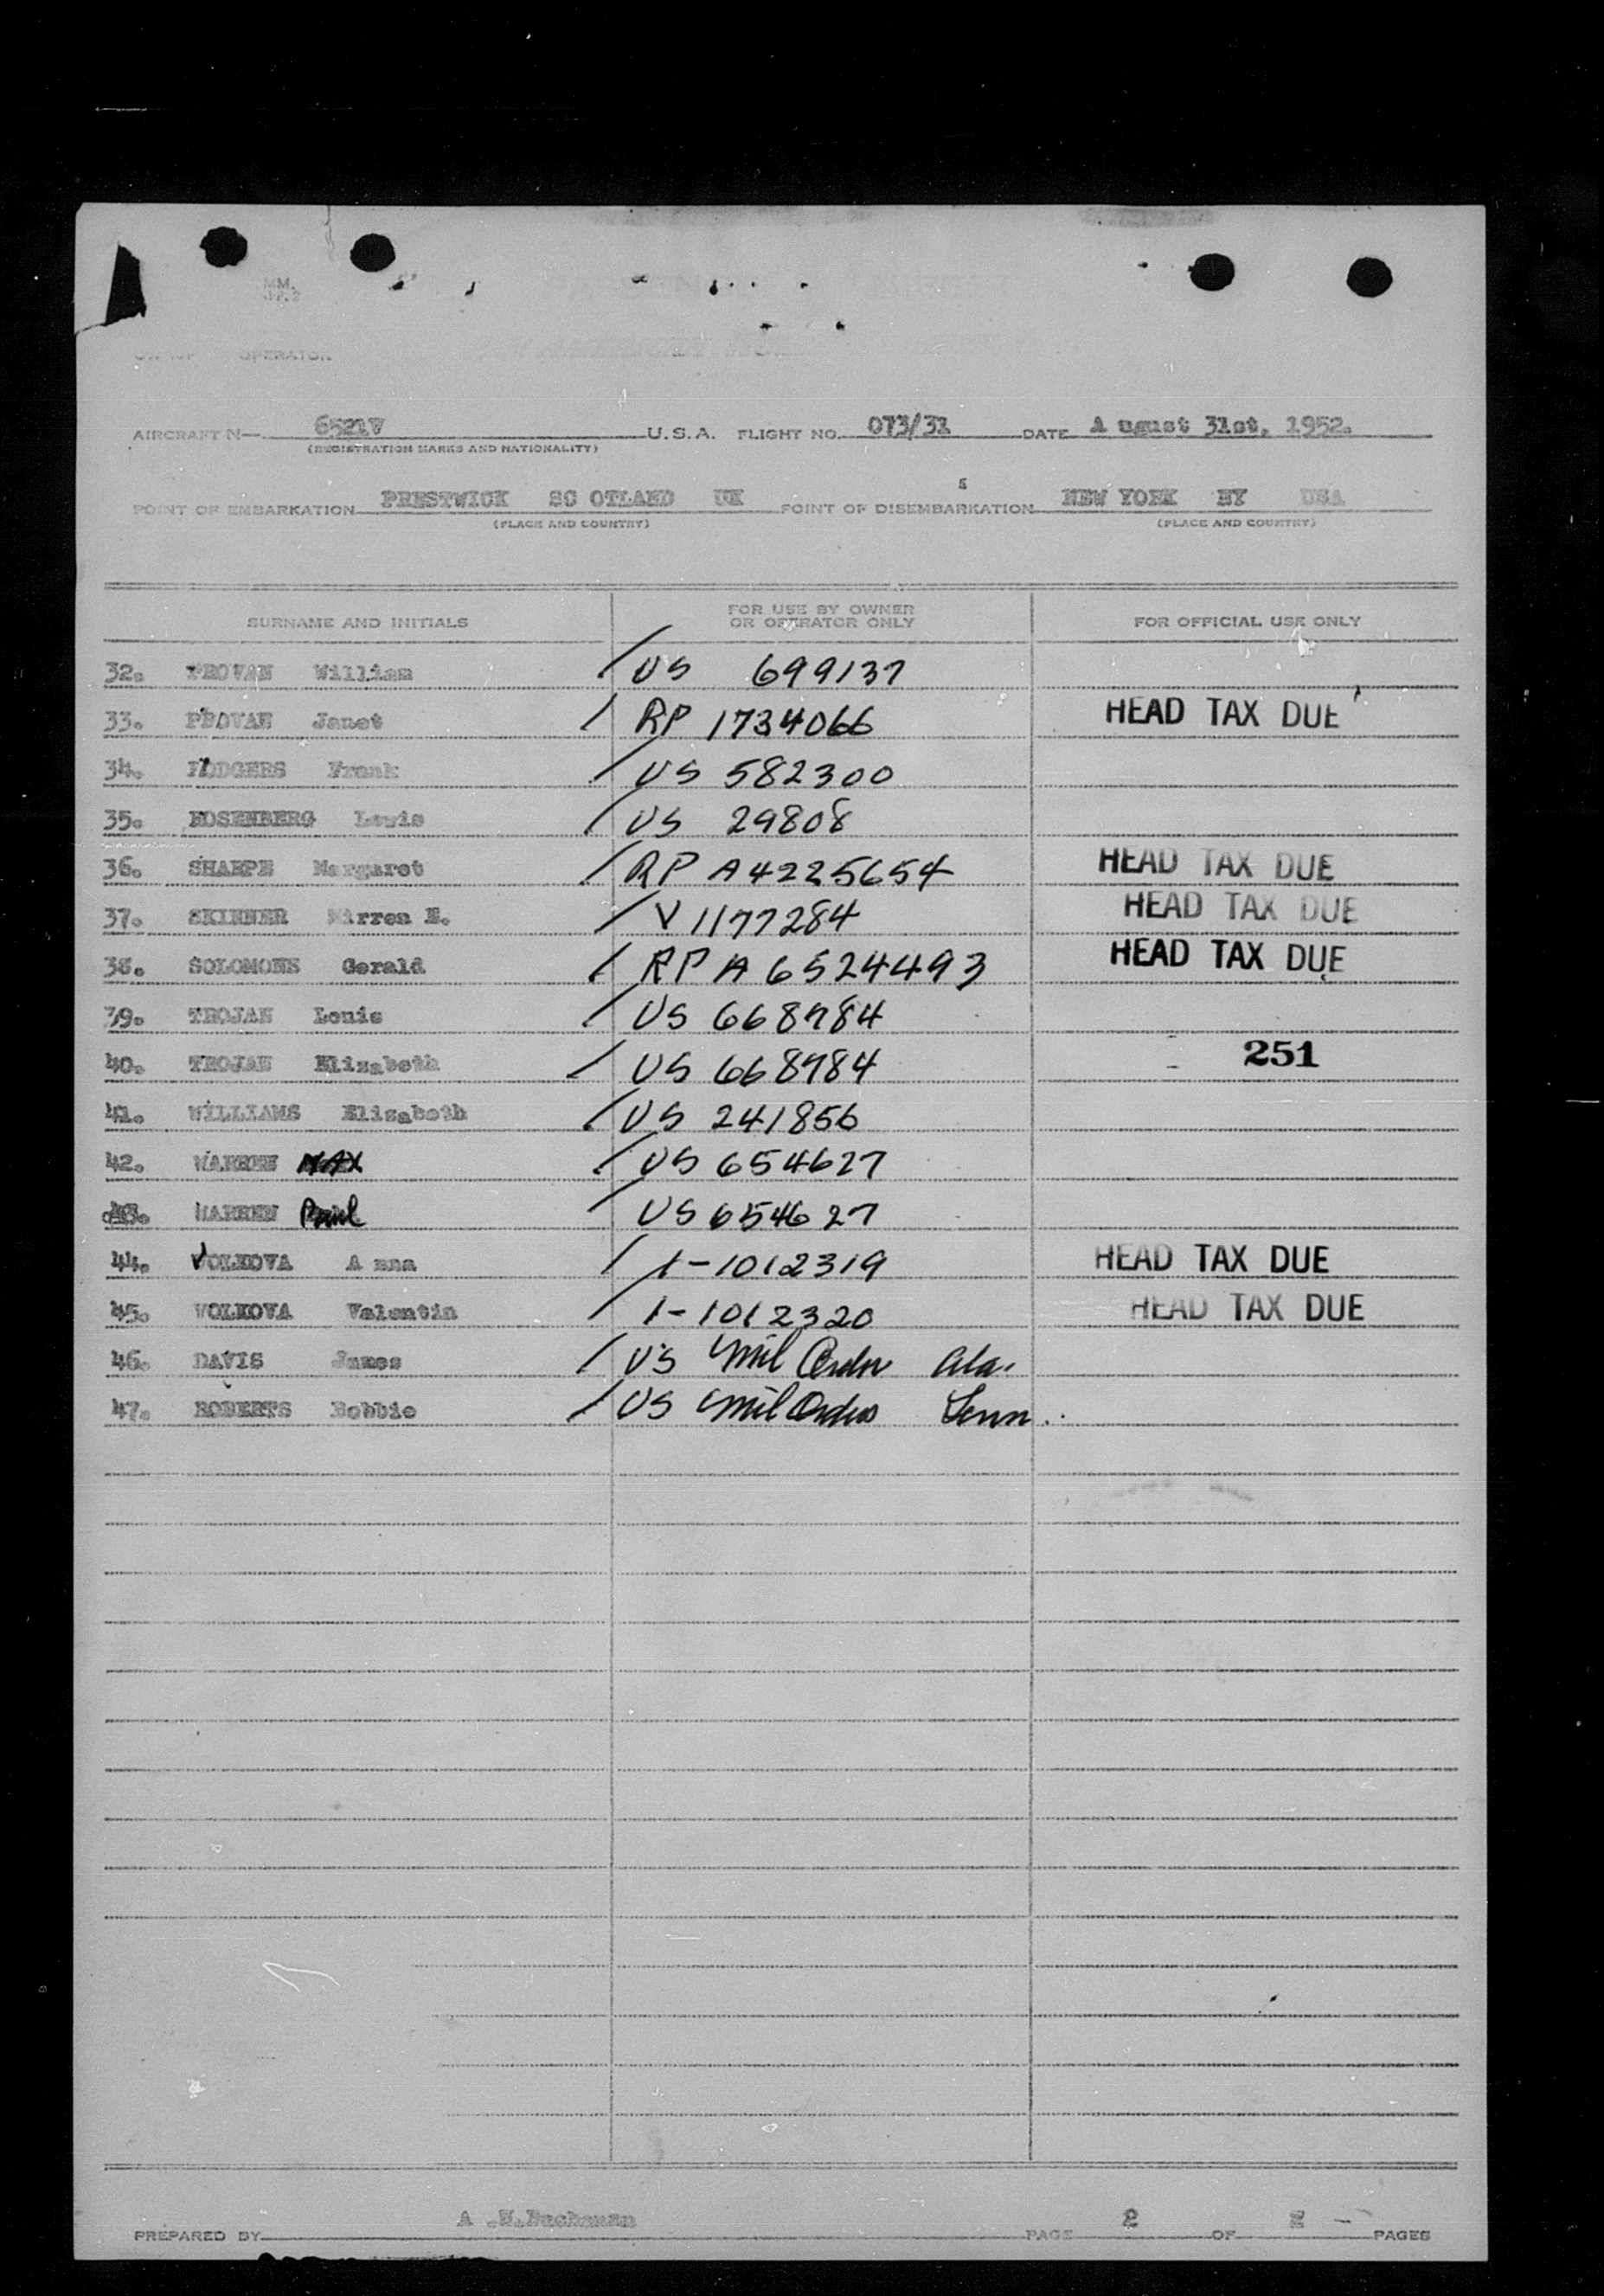 OPERATOR
AIRCRAFT N— 6521V U.S.A. FLIGHT NO. 073/31 DATE A ugust 31st, 1952.
(REGISTRATION MARKS AND NATIONALITY)
POINT OF EMBARKATION PRESTWICK SC OTLAND UK POINT OF DISEMBARKATION NEW YORK NY USA
(PLACE AND COUNTRY) (PLACE AND COUNTRY)
SURNAME AND INITIALS FOR USE BY OWNER OR OPERATOR ONLY FOR OFFICIAL USE ONLY
32. PROVAN William / US 699137
33. PROVAN Janet / RP 1734066 HEAD TAX DUE
34. RODGERS Frank / US 582300
35. ROSENBERG Louis / US 29808
36. SHARPE Margaret / RP A4225654 HEAD TAX DUE
37. SKINNER Mirren E. / V 1177284 HEAD TAX DUE
38. SOLOMONS Gerald / RP A 6524493 HEAD TAX DUE
39. TROJAN Louis / US 668784
40. TROJAN Elizabeth / US 668784 251
41. WILLIAMS Elizabeth / US 241856
42. WARREN MAX / US 654627
43. WARREN Paul / US 654627
44. VOLKOVA A nna / 1-1012319 HEAD TAX DUE
45. VOLKOVA Valentin / 1-1012320 HEAD TAX DUE
46. DAVIS James / US Mil Order Ala.
47. ROBERTS Bobbie / US Mil Orders Tenn.
PREPARED BY A .N.Buchanan PAGE 2 OF 2 PAGES